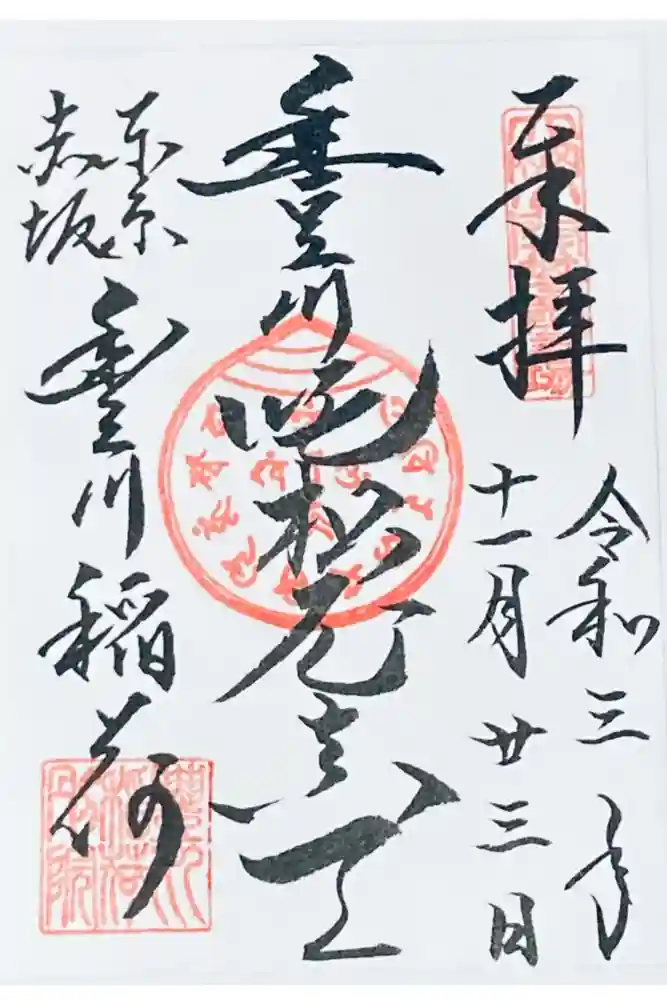 奉拝
令和三年
十一月廿三日
豊川吒枳尼真天
東京
赤坂
豊川稲荷